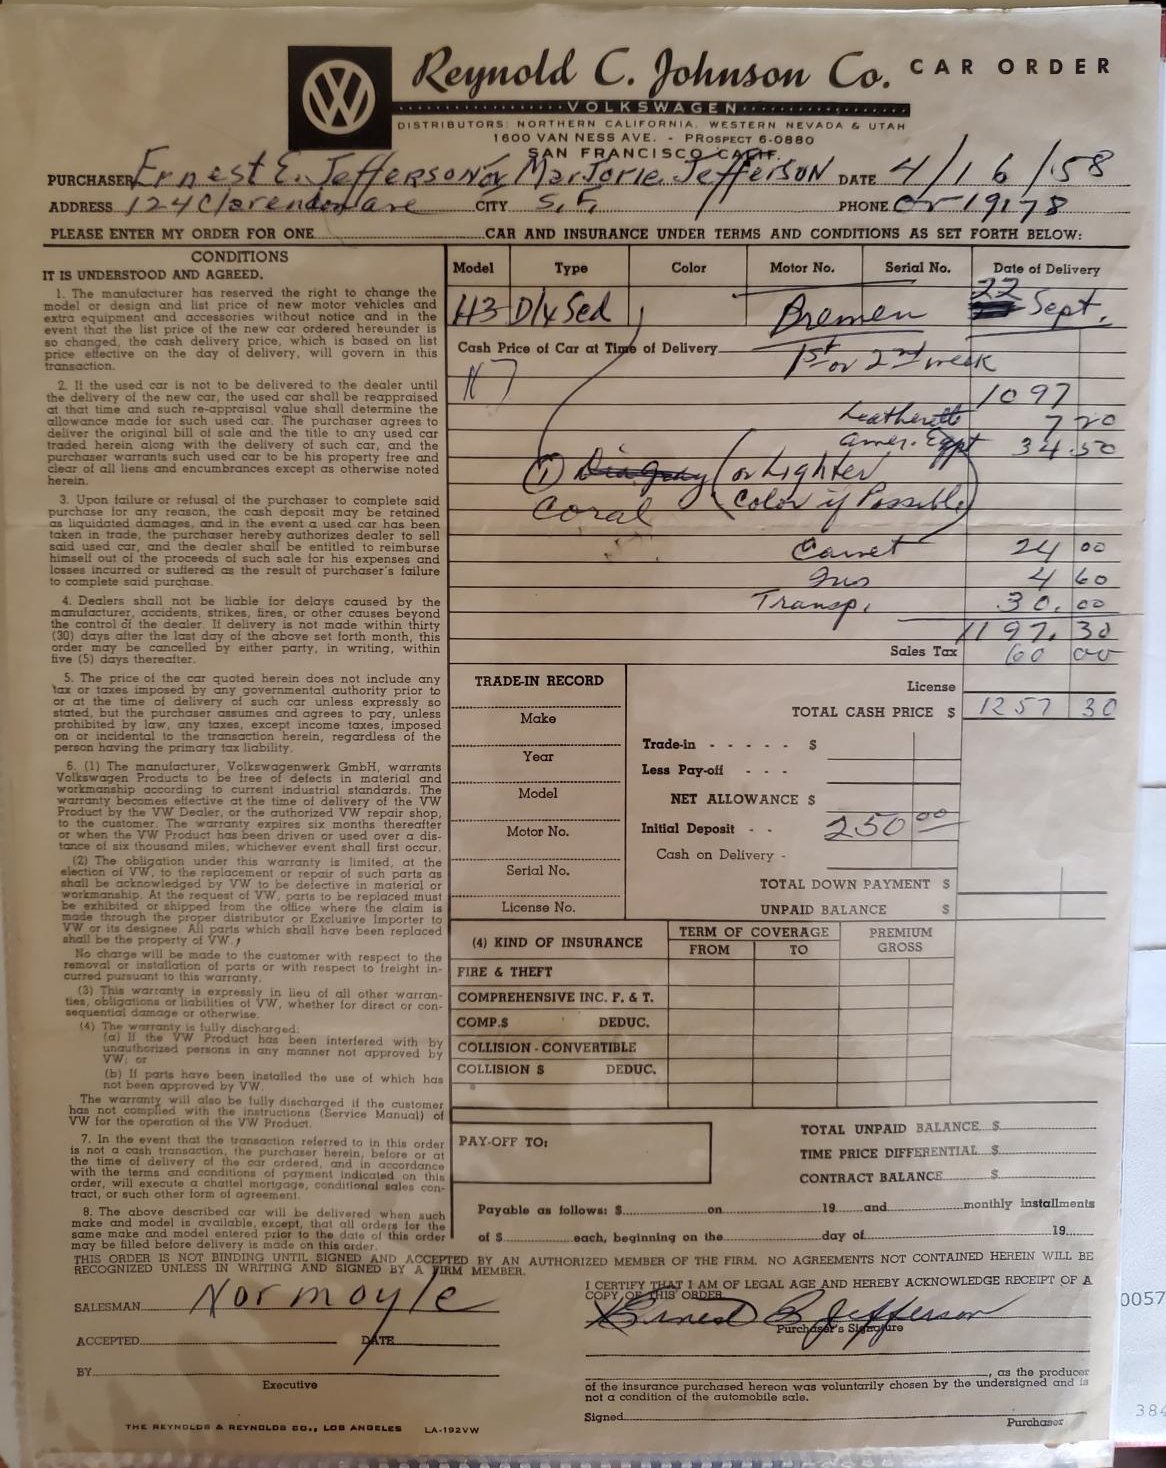 Reynold C. Johnson Co. CAR ORDER
VOLKSWAGEN
DISTRIBUTORS: NORTHERN CALIFORNIA, WESTERN NEVADA & UTAH
1600 VAN NESS AVE. - PROSPECT 6-0880
SAN FRANCISCO CALIF.
PURCHASER Ernest E. Jefferson or Marjorie Jefferson DATE 4/16/58
ADDRESS 124 Clarendon ave CITY S.F. PHONE or 19178
PLEASE ENTER MY ORDER FOR ONE CAR AND INSURANCE UNDER TERMS AND CONDITIONS AS SET FORTH BELOW:
CONDITIONS
IT IS UNDERSTOOD AND AGREED.
1. The manufacturer has reserved the right to change the
model or design and list price of new motor vehicles and
extra equipment and accessories without notice and in the
event that the list price of the new car ordered hereunder is
so changed, the cash delivery price, which is based on list
price effective on the day of delivery, will govern in this
transaction.
2. If the used car is not to be delivered to the dealer until
the delivery of the new car, the used car shall be reappraised
at that time and such re-appraisal value shall determine the
allowance made for such used car. The purchaser agrees to
deliver the original bill of sale and the title to any used car
traded herein along with the delivery of such car, and the
purchaser warrants such used car to be his property free and
clear of all liens and encumbrances except as otherwise noted
herein.
3. Upon failure or refusal of the purchaser to complete said
purchase for any reason, the cash deposit may be retained
as liquidated damages, and in the event a used car has been
taken in trade, the purchaser hereby authorizes dealer to sell
said used car, and the dealer shall be entitled to reimburse
himself out of the proceeds of such sale for his expenses and
losses incurred or suffered as the result of purchaser's failure
to complete said purchase.
4. Dealers shall not be liable for delays caused by the
manufacturer, accidents, strikes, fires, or other causes beyond
the control of the dealer. If delivery is not made within thirty
(30) days after the last day of the above set forth month, this
order may be cancelled by either party, in writing, within
five (5) days thereafter.
5. The price of the car quoted herein does not include any
tax or taxes imposed by any governmental authority prior to
or at the time of delivery of such car unless expressly so
stated, but the purchaser assumes and agrees to pay, unless
prohibited by law, any taxes, except income taxes, imposed
on or incidental to the transaction herein, regardless of the
person having the primary tax liability.
6. (1) The manufacturer, Volkswagenwerk GmbH, warrants
Volkswagen Products to be free of defects in material and
workmanship according to current industrial standards. The
warranty becomes effective at the time of delivery of the VW
Product by the VW Dealer, or the authorized VW repair shop,
to the customer. The warranty expires six months thereafter
or when the VW Product has been driven or used over a dis-
tance of six thousand miles, whichever event shall first occur.
(2) The obligation under this warranty is limited, at the
election of VW, to the replacement or repair of such parts as
shall be acknowledged by VW to be defective in material or
workmanship. At the request of VW, parts to be replaced must
be exhibited or shipped from the office where the claim is
made through the proper distributor or Exclusive Importer to
VW or its designee. All parts which shall have been replaced
shall be the property of VW.
No charge will be made to the customer with respect to the
removal or installation of parts or with respect to freight in-
curred pursuant to this warranty.
(3) This warranty is expressly in lieu of all other warran-
ties, obligations or liabilities of VW, whether for direct or con-
sequential damage or otherwise.
(4) The warranty is fully discharged:
(a) If the VW Product has been interfered with by
unauthorized persons in any manner not approved by
VW; or
(b) If parts have been installed the use of which has
not been approved by VW.
The warranty will also be fully discharged if the customer
has not complied with the instructions (Service Manual) of
VW for the operation of the VW Product.
7. In the event that the transaction referred to in this order
is not a cash transaction, the purchaser herein, before or at
the time of delivery of the car ordered, and in accordance
with the terms and conditions of payment indicated on this
order, will execute a chattel mortgage, conditional sales con-
tract, or such other form of agreement.
8. The above described car will be delivered when such
make and model is available, except, that all orders for the
same make and model entered prior to the date of this order
may be filled before delivery is made on this order.
Model Type Color Motor No. Serial No. Date of Delivery
113 Dlx Sed Bremen 22 Sept.
Cash Price of Car at Time of Delivery 1st or 2nd week
1097
Leatherette 7 20
Amer. Eqpt 34.50
(1) (or Lighter
Coral Color if Possible)
Carnet 24 00
Ins 4 60
Transp. 30.00
1197.30
Sales Tax 60 00
License
TOTAL CASH PRICE $ 1257 30
TRADE-IN RECORD
Make
Year
Model
Motor No.
Serial No.
License No.
Trade-in - - - - - $
Less Pay-off - - -
NET ALLOWANCE $
Initial Deposit - - 250 00
Cash on Delivery -
TOTAL DOWN PAYMENT $
UNPAID BALANCE $
(4) KIND OF INSURANCE TERM OF COVERAGE PREMIUM GROSS
FROM TO
FIRE & THEFT
COMPREHENSIVE INC. F. & T.
COMP.$ DEDUC.
COLLISION - CONVERTIBLE
COLLISION $ DEDUC.
PAY-OFF TO:
TOTAL UNPAID BALANCE $
TIME PRICE DIFFERENTIAL $
CONTRACT BALANCE $
Payable as follows: $ on 19 and monthly installments
of $ each, beginning on the day of 19
THIS ORDER IS NOT BINDING UNTIL SIGNED AND ACCEPTED BY AN AUTHORIZED MEMBER OF THE FIRM. NO AGREEMENTS NOT CONTAINED HEREIN WILL BE
RECOGNIZED UNLESS IN WRITING AND SIGNED BY A FIRM MEMBER.
SALESMAN Normoyle
ACCEPTED DATE
BY
Executive
I CERTIFY THAT I AM OF LEGAL AGE AND HEREBY ACKNOWLEDGE RECEIPT OF A
COPY OF THIS ORDER
X Ernest E Jefferson
Purchaser's Signature
, as the producer
of the insurance purchased hereon was voluntarily chosen by the undersigned and is
not a condition of the automobile sale.
Signed
Purchaser
THE REYNOLDS & REYNOLDS CO., LOS ANGELES LA-192VW
0057
384